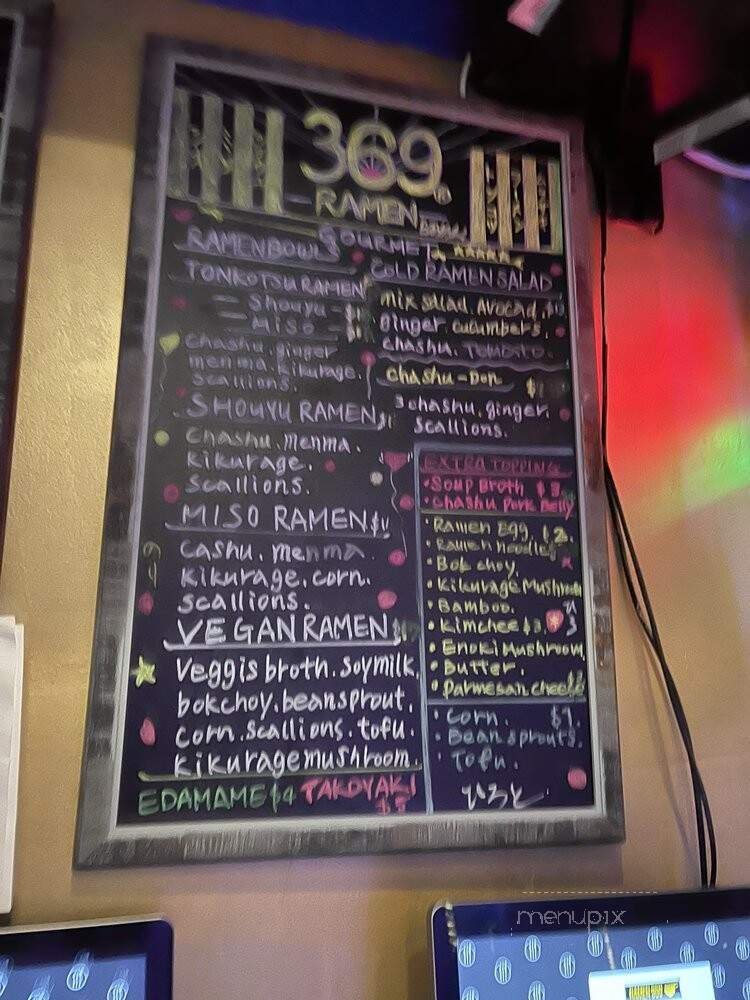 369
RAMEN
GOURMET
RAMEN BOWLS
TONKOTSU RAMEN
Shouyu
MISO
chashu. ginger
menma. Kikurage.
Scallions.
SHOUYU RAMEN
Chashu. menma.
Kikurage.
Scallions.
MISO RAMEN
Cashu. menma
Kikurage. corn.
scallions.
VEGAN RAMEN
Veggis broth. soymilk.
bokchoy. beansprout.
corn. scallions. tofu.
Kikurage mushroom.
EDAMAME $4 TAKOYAKI
$8
COLD RAMEN SALAD
mix salad. Avocad.
ginger. cucumbers.
chashu. Tomato.
chashu-Don
3 chashu. ginger.
scallions.
EXTRA TOPPING
• Soup Broth $3.
• Chashu Pork Belly
• Ramen Egg.
• Ramen noodles
• Bok choy.
• Kikurage Mushroom
• Bamboo.
• Kimchee $3.
• Enoki Mushroom
• Butter.
• Parmesan cheese
• Corn.
• Bean sprouts.
• Tofu.
ひろと
menupix